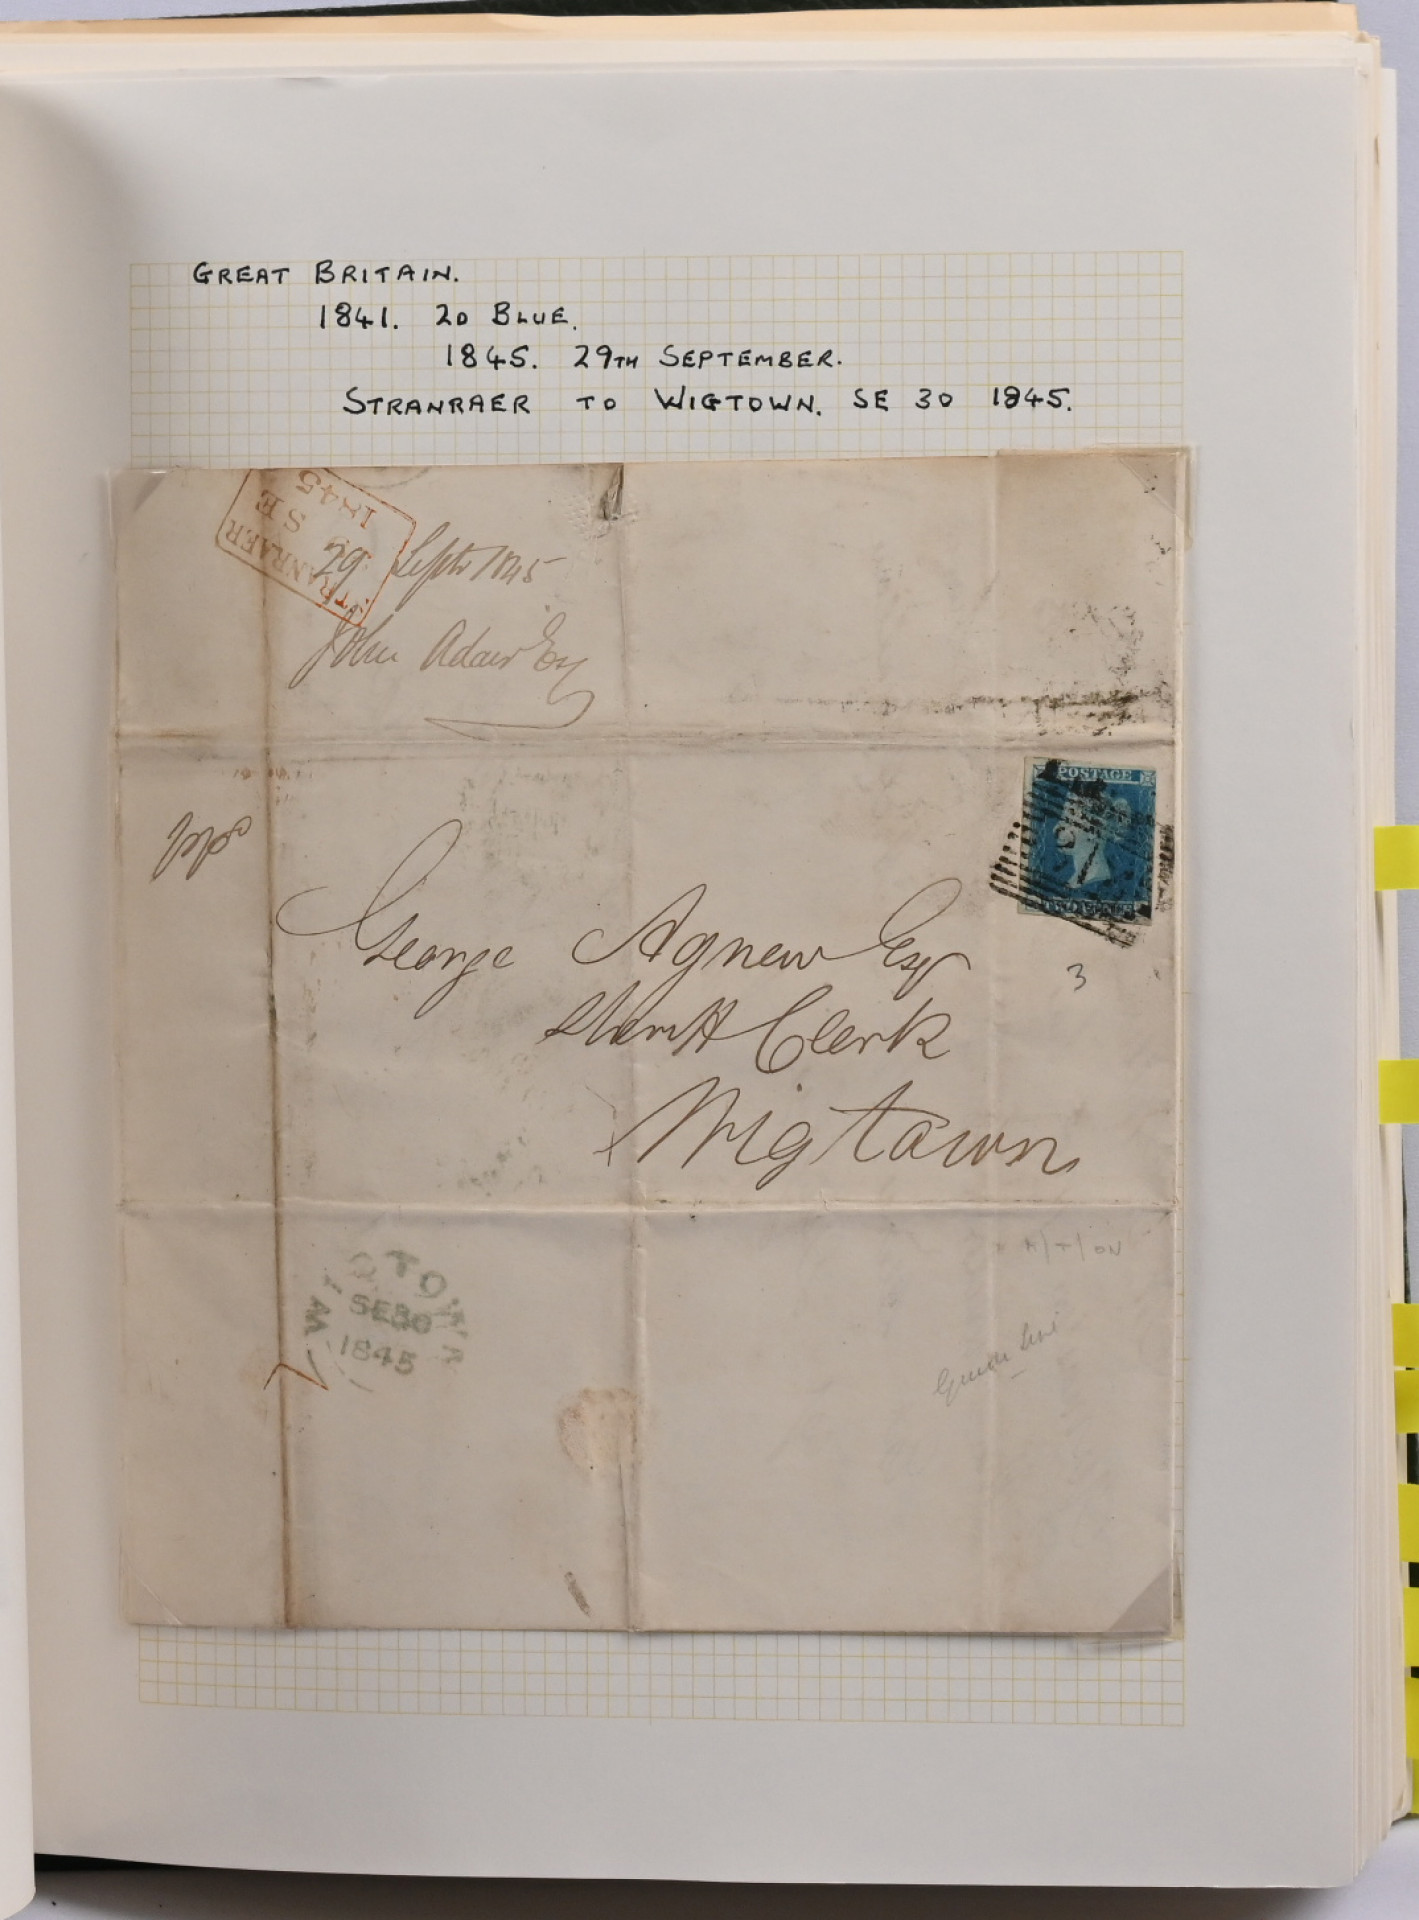 GREAT BRITAIN.
1841. 2D BLUE.
1845. 29TH SEPTEMBER.
STRANRAER TO WIGTOWN. SE 30 1845.
STRANRAER
SE
1845
29 Septr 1845
John Adair Esq
POSTAGE
TWO PENCE
George Agnew Esq
Sheriff Clerk
Wigtown
3
WIGTOWN
SE 30
1845
Guide line